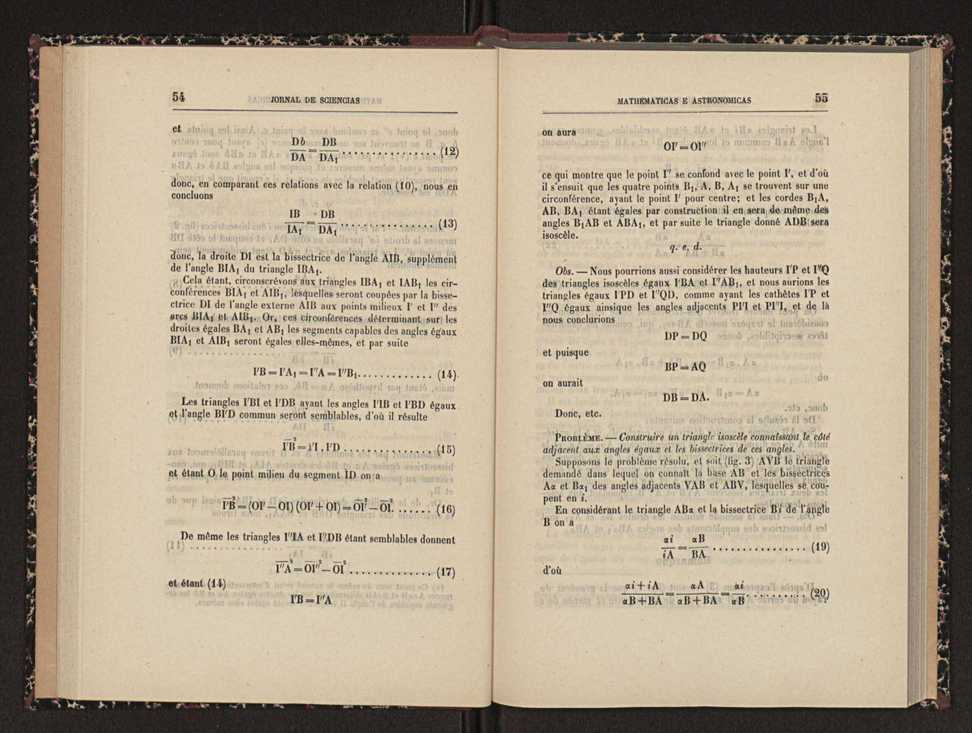 54
JORNAL DE SCIENCIAS
et
Db/DA = DB/DA₁ ................ (12)
donc, en comparant ces relations avec la relation (10), nous en
concluons
IB/IA₁ = DB/DA₁ ................ (13)
donc, la droite DI est la bissectrice de l'angle AIB, supplément
de l'angle BIA₁ du triangle IBA₁.
Cela étant, circonscrévons aux triangles IBA₁ et IAB₁ les cir-
conférences BIA₁ et AIB₁, lésquelles seront coupées par la bisse-
ctrice DI de l'angle externe AIB aux points milieux I' et I'' des
arcs BIA₁ et AIB₁. Or, ces circonférences déterminant sur les
droites égales BA₁ et AB₁ les segments capables des angles égaux
BIA₁ et AIB₁ seront égales elles-mêmes, et par suite
I'B = I'A₁ = I''A = I''B₁ ............ (14)
Les triangles I'BI et I'DB ayant les angles I'IB et I'BD égaux
et l'angle BI'D commun seront semblables, d'où il résulte
I'B² = I'I . I'D ................ (15)
et étant O le point milieu du segment ID on a
I'B² = (OI' − OI) (OI' + OI) = OI'² − OI² ...... (16)
De même les triangles I''IA et I''DB étant semblables donnent
I''A² = OI''² − OI² ............... (17)
et étant (14)
I'B = I''A
MATHEMATICAS E ASTRONOMICAS
55
on aura
OI' = OI''
ce qui montre que le point I'' se confond avec le point I', et d'où
il s'ensuit que les quatre points B₁, A, B, A₁ se trouvent sur une
circonférence, ayant le point I' pour centre; et les cordes B₁A,
AB, BA₁ étant égales par construction il en sera de même des
angles B₁AB et ABA₁, et par suite le triangle donné ADB sera
isoscèle.
q. e. d.
Obs. — Nous pourrions aussi considérer les hauteurs I'P et I''Q
des triangles isoscèles égaux I'BA et I''AB₁, et nous aurions les
triangles égaux I'PD et I''QD, comme ayant les cathètes I'P et
I''Q égaux ainsique les angles adjacents PI'I et PI''I, et de là
nous conclurions
DP = DQ
et puisque
BP = AQ
on aurait
DB = DA.
Donc, etc.
PROBLÈME. — Construire un triangle isoscèle connaissant le côté
adjacent aux angles égaux et les bissectrices de ces angles.
Supposons le problème résolu, et soit (fig. 3) AVB le triangle
demandé dans lequel on connaît la base AB et les bissectrices
Aα et Bα₁ des angles adjacents VAB et ABV, lesquelles se cou-
pent en i.
En considérant le triangle ABα et la bissectrice Bi de l'angle
B on a
αi/iA = αB/BA ................ (19)
d'où
(αi + iA)/(αB + BA) = αA/(αB + BA) = αi/αB .......... (20)